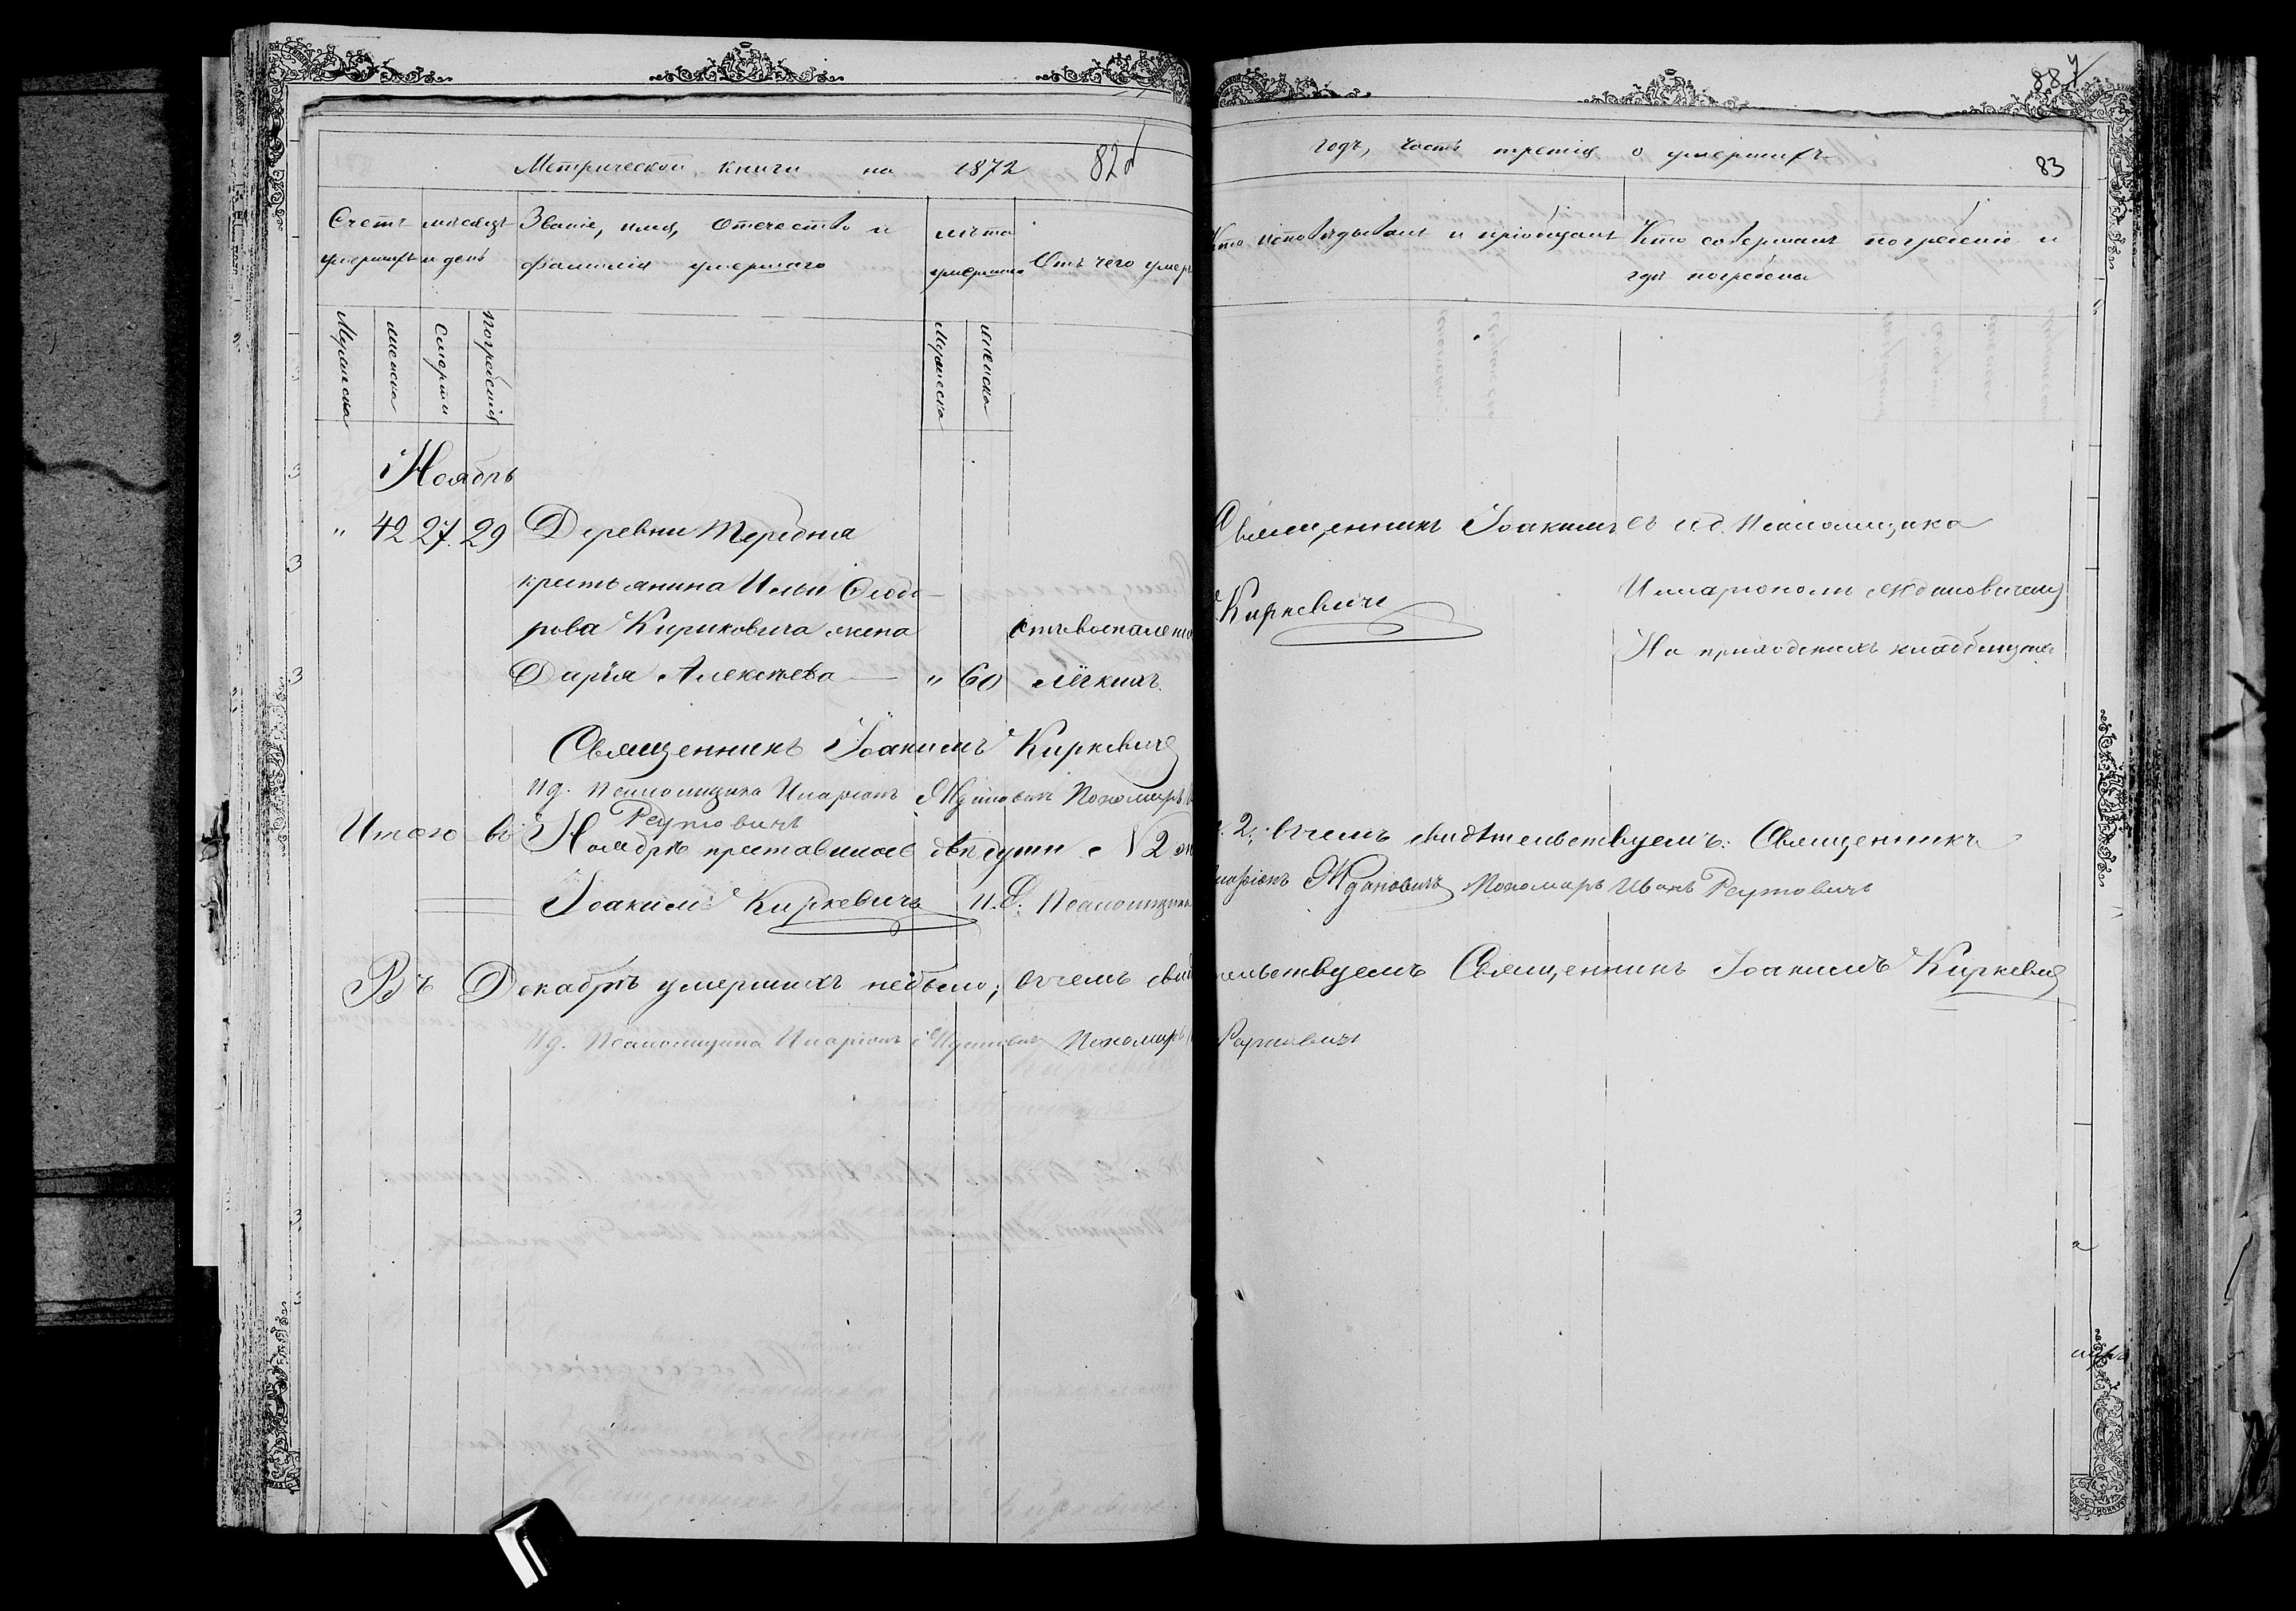 Метрической книги на 1872
82
Счетъ умершихъ
мѣсяцъ и день
Званіе, имя, отечество и фамилія умершаго
лѣта умершаго
Отъ чего умеръ
Мужеска
женска
Смерти
Погребенія
Мужеска
женска
Ноябрь
" 42 27. 29 Деревни Теребня
крестьянина Ильи Ѳеодо-
рова Кириковича жена
Дарія Алексѣева — " 60
отъ воспаленія
лёгкихъ.
Священникъ Іоакимъ Киркевичъ
Ид. Псаломщика Иларіонъ Ждановичъ Пономарь
Реутовичъ
Итого въ Ноябрѣ преставилось двѣ души
Іоакимъ Киркевичъ И.д. Псаломщика
Въ Декабрѣ умершихъ небыло; въ чемъ свид
Ид. Псаломщика Иларіонъ Ждановичъ Пономарь
887
годъ, часть третія о умершихъ
83
Кто исповѣдывалъ и пріобщалъ
Кто совершалъ погребеніе и
гдѣ погребены
Священникъ Іоакимъ
Киркевичъ
съ ид. Псаломщика
Илларіономъ Ждановичемъ
На приходскихъ кладбищахъ
2; въ чемъ свидѣтельствуемъ: Священникъ
Ждановичъ Пономарь Иванъ Реутовичъ
тельствуемъ Священникъ Іоакимъ Киркевичъ
Реутовичъ